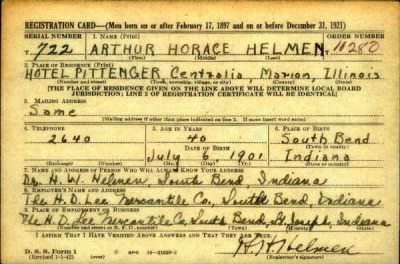 REGISTRATION CARD—(Men born on or after February 17, 1897 and on or before December 31, 1921)
SERIAL NUMBER 1. NAME (Print) ORDER NUMBER
T- 722 ARTHUR HORACE HELMEN 10280
(First) (Middle) (Last)
2. PLACE OF RESIDENCE (Print)
HOTEL PITTENGER Centralia, Marion, Illinois
(Number and street) (Town, township, village, or city) (County) (State)
[THE PLACE OF RESIDENCE GIVEN ON THE LINE ABOVE WILL DETERMINE LOCAL BOARD
JURISDICTION; LINE 2 OF REGISTRATION CERTIFICATE WILL BE IDENTICAL]
3. MAILING ADDRESS
Same
[Mailing address if other than place indicated on line 2. If same insert word same]
4. TELEPHONE 5. AGE IN YEARS 6. PLACE OF BIRTH
2640 40 South Bend
DATE OF BIRTH (Town or county)
July 6, 1901 Indiana
(Exchange) (Number) (Mo.) (Day) (Yr.) (State or country)
7. NAME AND ADDRESS OF PERSON WHO WILL ALWAYS KNOW YOUR ADDRESS
Dr. H. W. Helmen, South Bend, Indiana
8. EMPLOYER'S NAME AND ADDRESS
The H. D. Lee Mercantile Co., South Bend, Indiana
9. PLACE OF EMPLOYMENT OR BUSINESS
The H. D. Lee Mercantile Co. South Bend, St Joseph, Indiana
(Number and street or R. F. D. number) (Town) (County) (State)
I AFFIRM THAT I HAVE VERIFIED ABOVE ANSWERS AND THAT THEY ARE TRUE.
D. S. S. Form 1
(Revised 1-1-42) (over)
Helmen